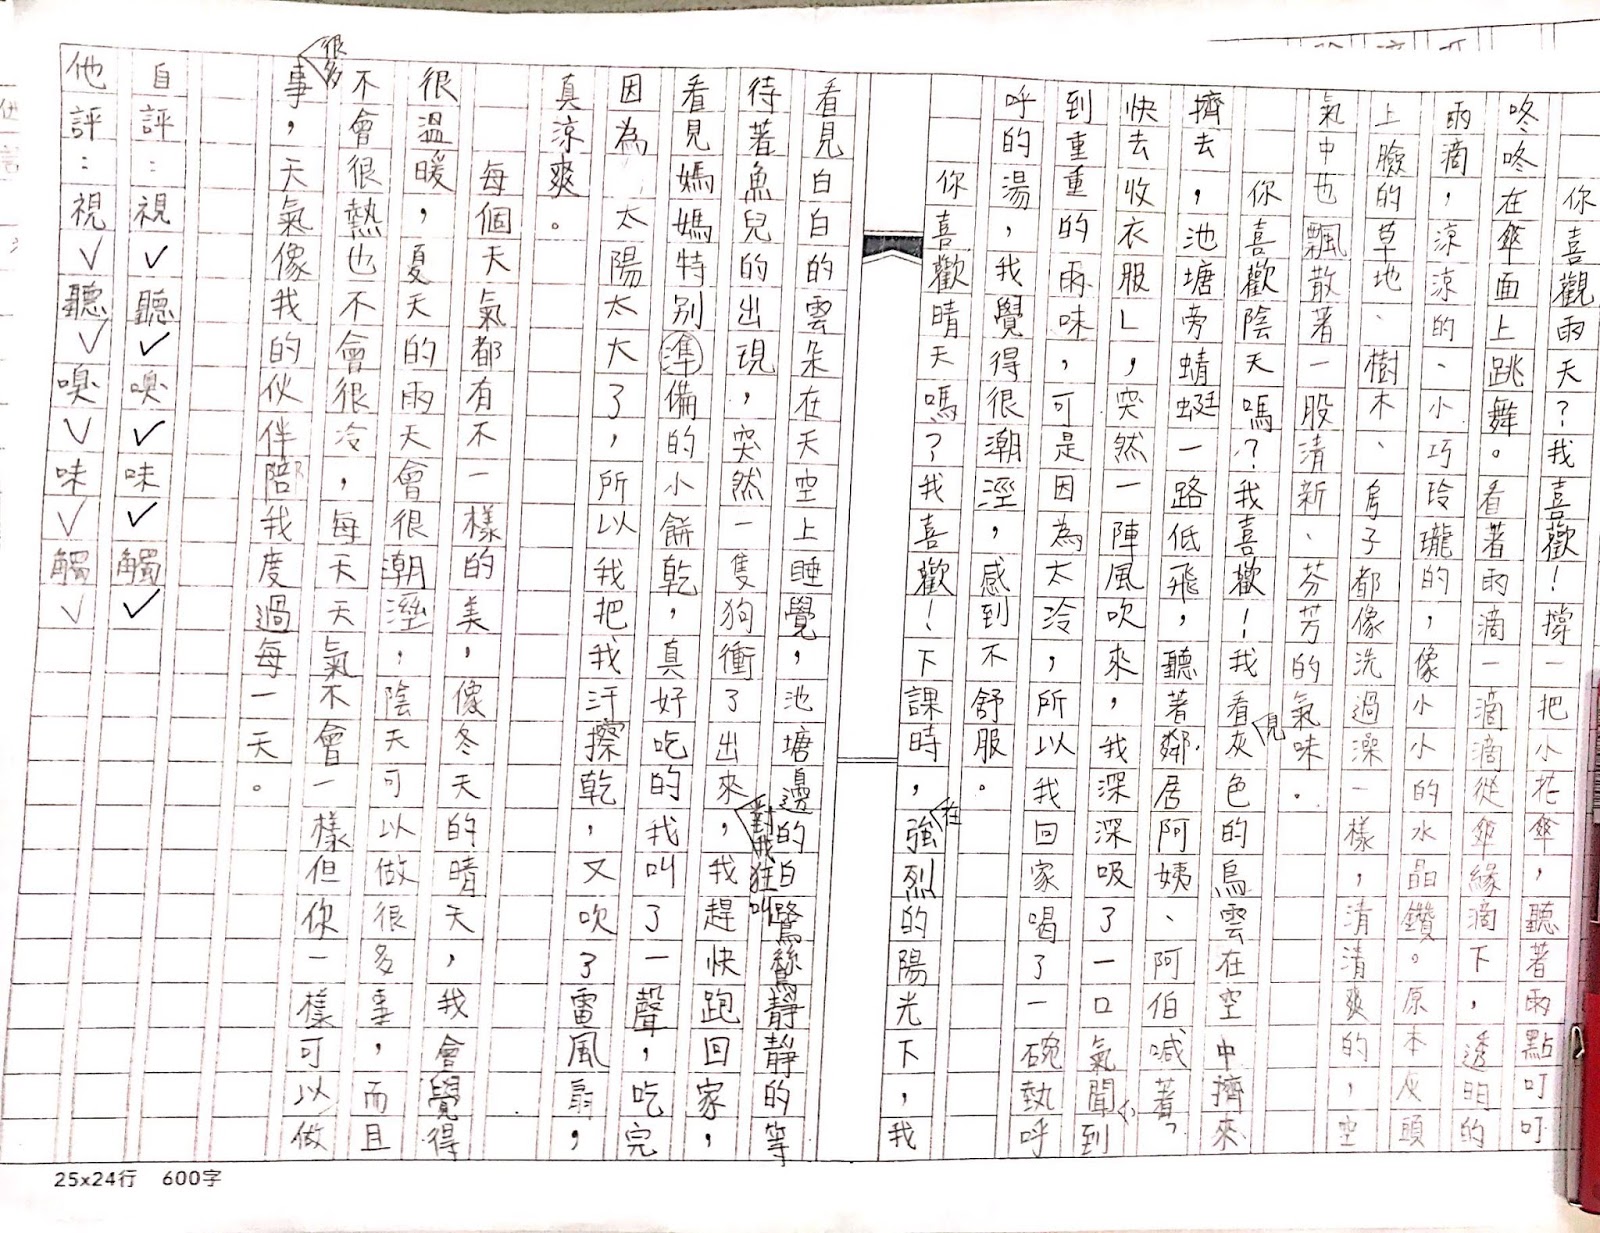 你喜觀雨天？我喜歡！撐一把小花傘，聽著雨點叮叮
咚咚在傘面上跳舞。看著雨滴一滴滴從傘緣滴下，透明的
雨滴，涼涼的、小巧玲瓏的，像小小的水晶鑽。原本灰頭
上臉的草地、樹木、房子都像洗過澡一樣，清清爽的，空
氣中也飄散著一股清新、芬芳的氣味．
你喜歡陰天嗎？我喜歡！我看見灰色的烏雲在空中擠來
擠去，池塘旁蜻蜓一路低飛，聽著鄰居阿姨、阿伯喊著「
快去收衣服」，突然一陣風吹來，我深深吸了一口氣聞到
到重重的雨味，可是因為太冷，所以我回家喝了一碗熱呼
呼的湯，我覺得很潮溼，感到不舒服。
你喜歡晴天嗎？我喜歡！下課時，在強烈的陽光下，我
看見白白的雲朵在天空上睡覺，池塘邊的白鷺鷥靜靜的等
待著魚兒的出現，突然一隻狗衝了出來，對我狂叫我趕快跑回家，
看見媽媽特別準備的小餅乾，真好吃的我叫了一聲，吃完
因為太陽太大了，所以我把我汗擦乾，又吹了電風扇，
真涼爽。
每個天氣都有不一樣的美，像冬天的晴天，我會覺得
很溫暖，夏天的雨天會很潮溼，陰天可以做很多事，而且
不會很熱也不會很冷，每天天氣不會一樣但你一樣可以做
很多事，天氣像我的伙伴陪我度過每一天。
自評：視✓聽✓嗅✓味✓觸✓
他評：視✓聽✓嗅✓味✓觸✓
25x24行 600字